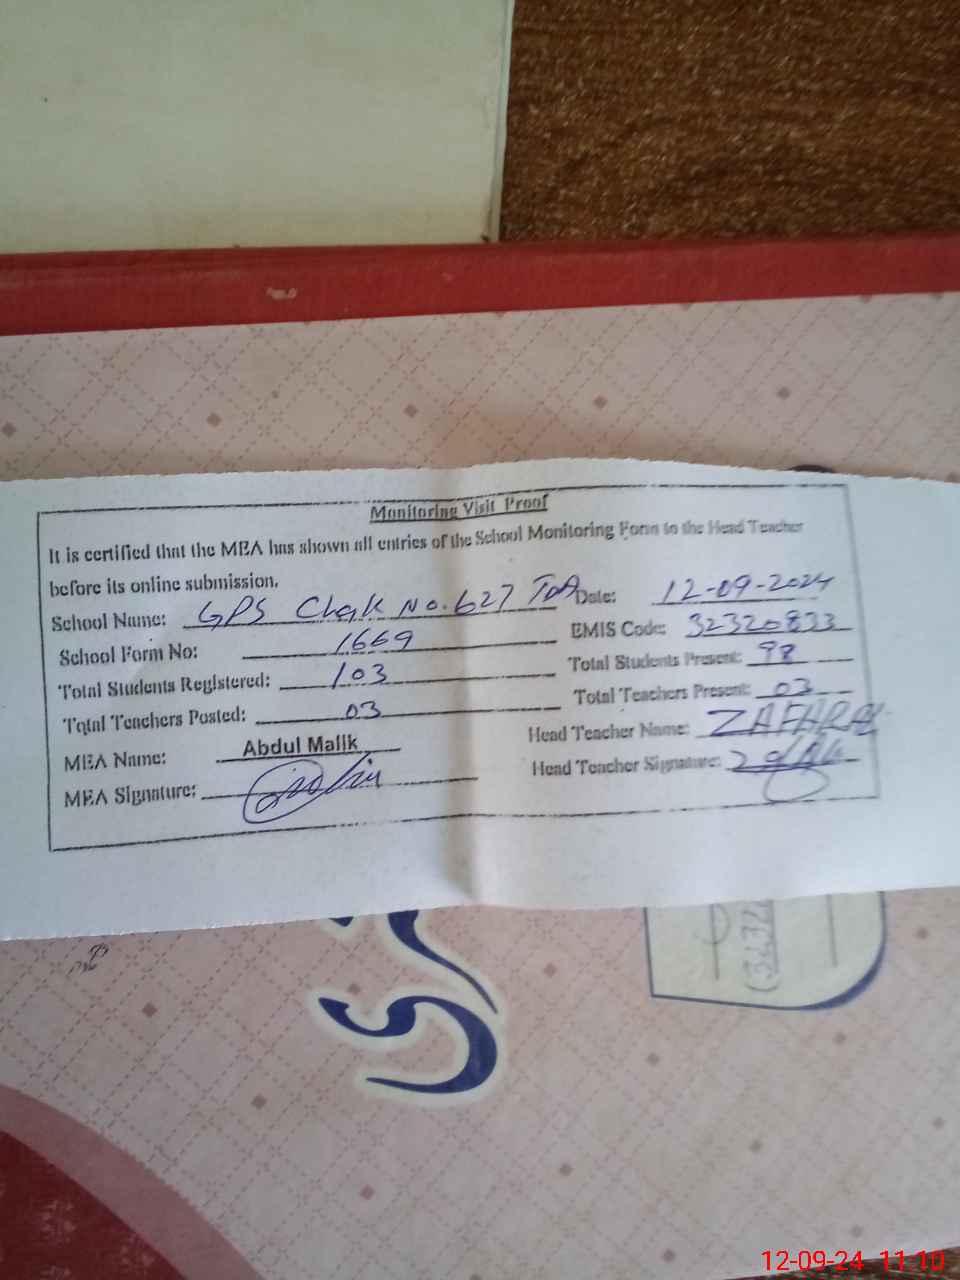 Monitoring Visit Proof
It is certified that the MEA has shown all entries of the School Monitoring Form to the Head Teacher
before its online submission.
School Name: GPS Chak No. 627 TDA Date: 12-09-2024
School Form No: 1669 EMIS Code: 32320833
Total Students Registered: 103 Total Students Present: 98
Total Teachers Posted: 03 Total Teachers Present: 03
MEA Name: Abdul Malik Head Teacher Name:
MEA Signature: Head Teacher Signature:
12-09-24 11:10